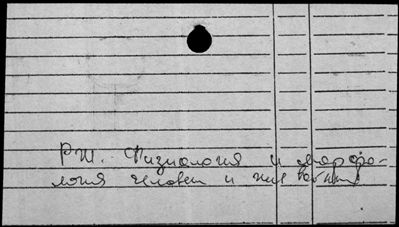 РЖ. Физиология и морфо-
логия человек и жив